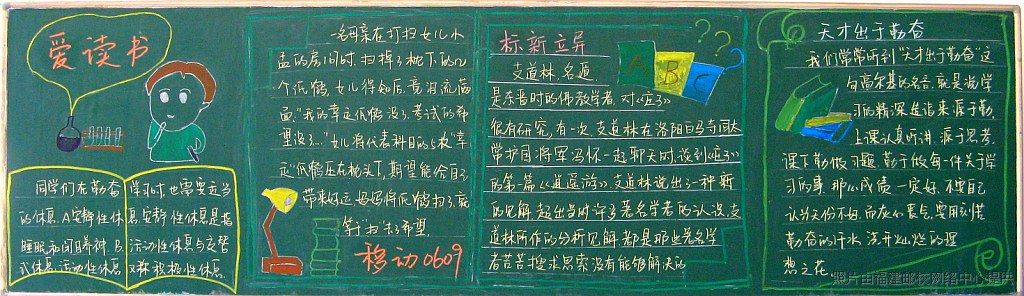 爱读书
同学们在勤奋
的休息。A安静性休
睡眠和闭目养神 B
式休息.活动性休息
学习时,也需要适当
息,安静性休息是指
活动性休息又交替
又称积极性休息.
一名母亲在打扫女儿小
孟的房间时,扫掉了枕下的几
个纸鹤,女儿得知后,竟泪流满
面:"我的幸运纸鹤没了,考试的希
望没了..."女儿将代表科目的5枚幸
运纸鹤压在枕头下,期望能给自己
带来好运,妈妈将纸鹤扫了,就
等于"扫"去了希望.
移动0609
标新立异
支道林,名遁.
是东晋时的佛教学者,对《庄子》
很有研究,有一次,支道林在洛阳白马寺同太
常护国将军冯怀一起聊天时,谈到《庄子》
的第一篇《逍遥游》,支道林说出了一种新
的见解,超出当时许多著名学者的认识,支
道林所作的分析见解都是那些先名学
者苦苦搜求思索没有能够解决的
A
B
C
天才出于勤奋
我们常常听到"天才出于勤奋"这
句高尔基的名言,就是说学
习的精深造诣来源于勤,
上课认真听讲,源于思考,
课下勤做习题,勤于做每一件关于学
习的事,那么成绩一定好,不要自己
认为天份不如,而灰心丧气,要用刻苦
勤奋的汗水,浇开灿烂的理
想之花.
照片由福建邮校网络中心提供